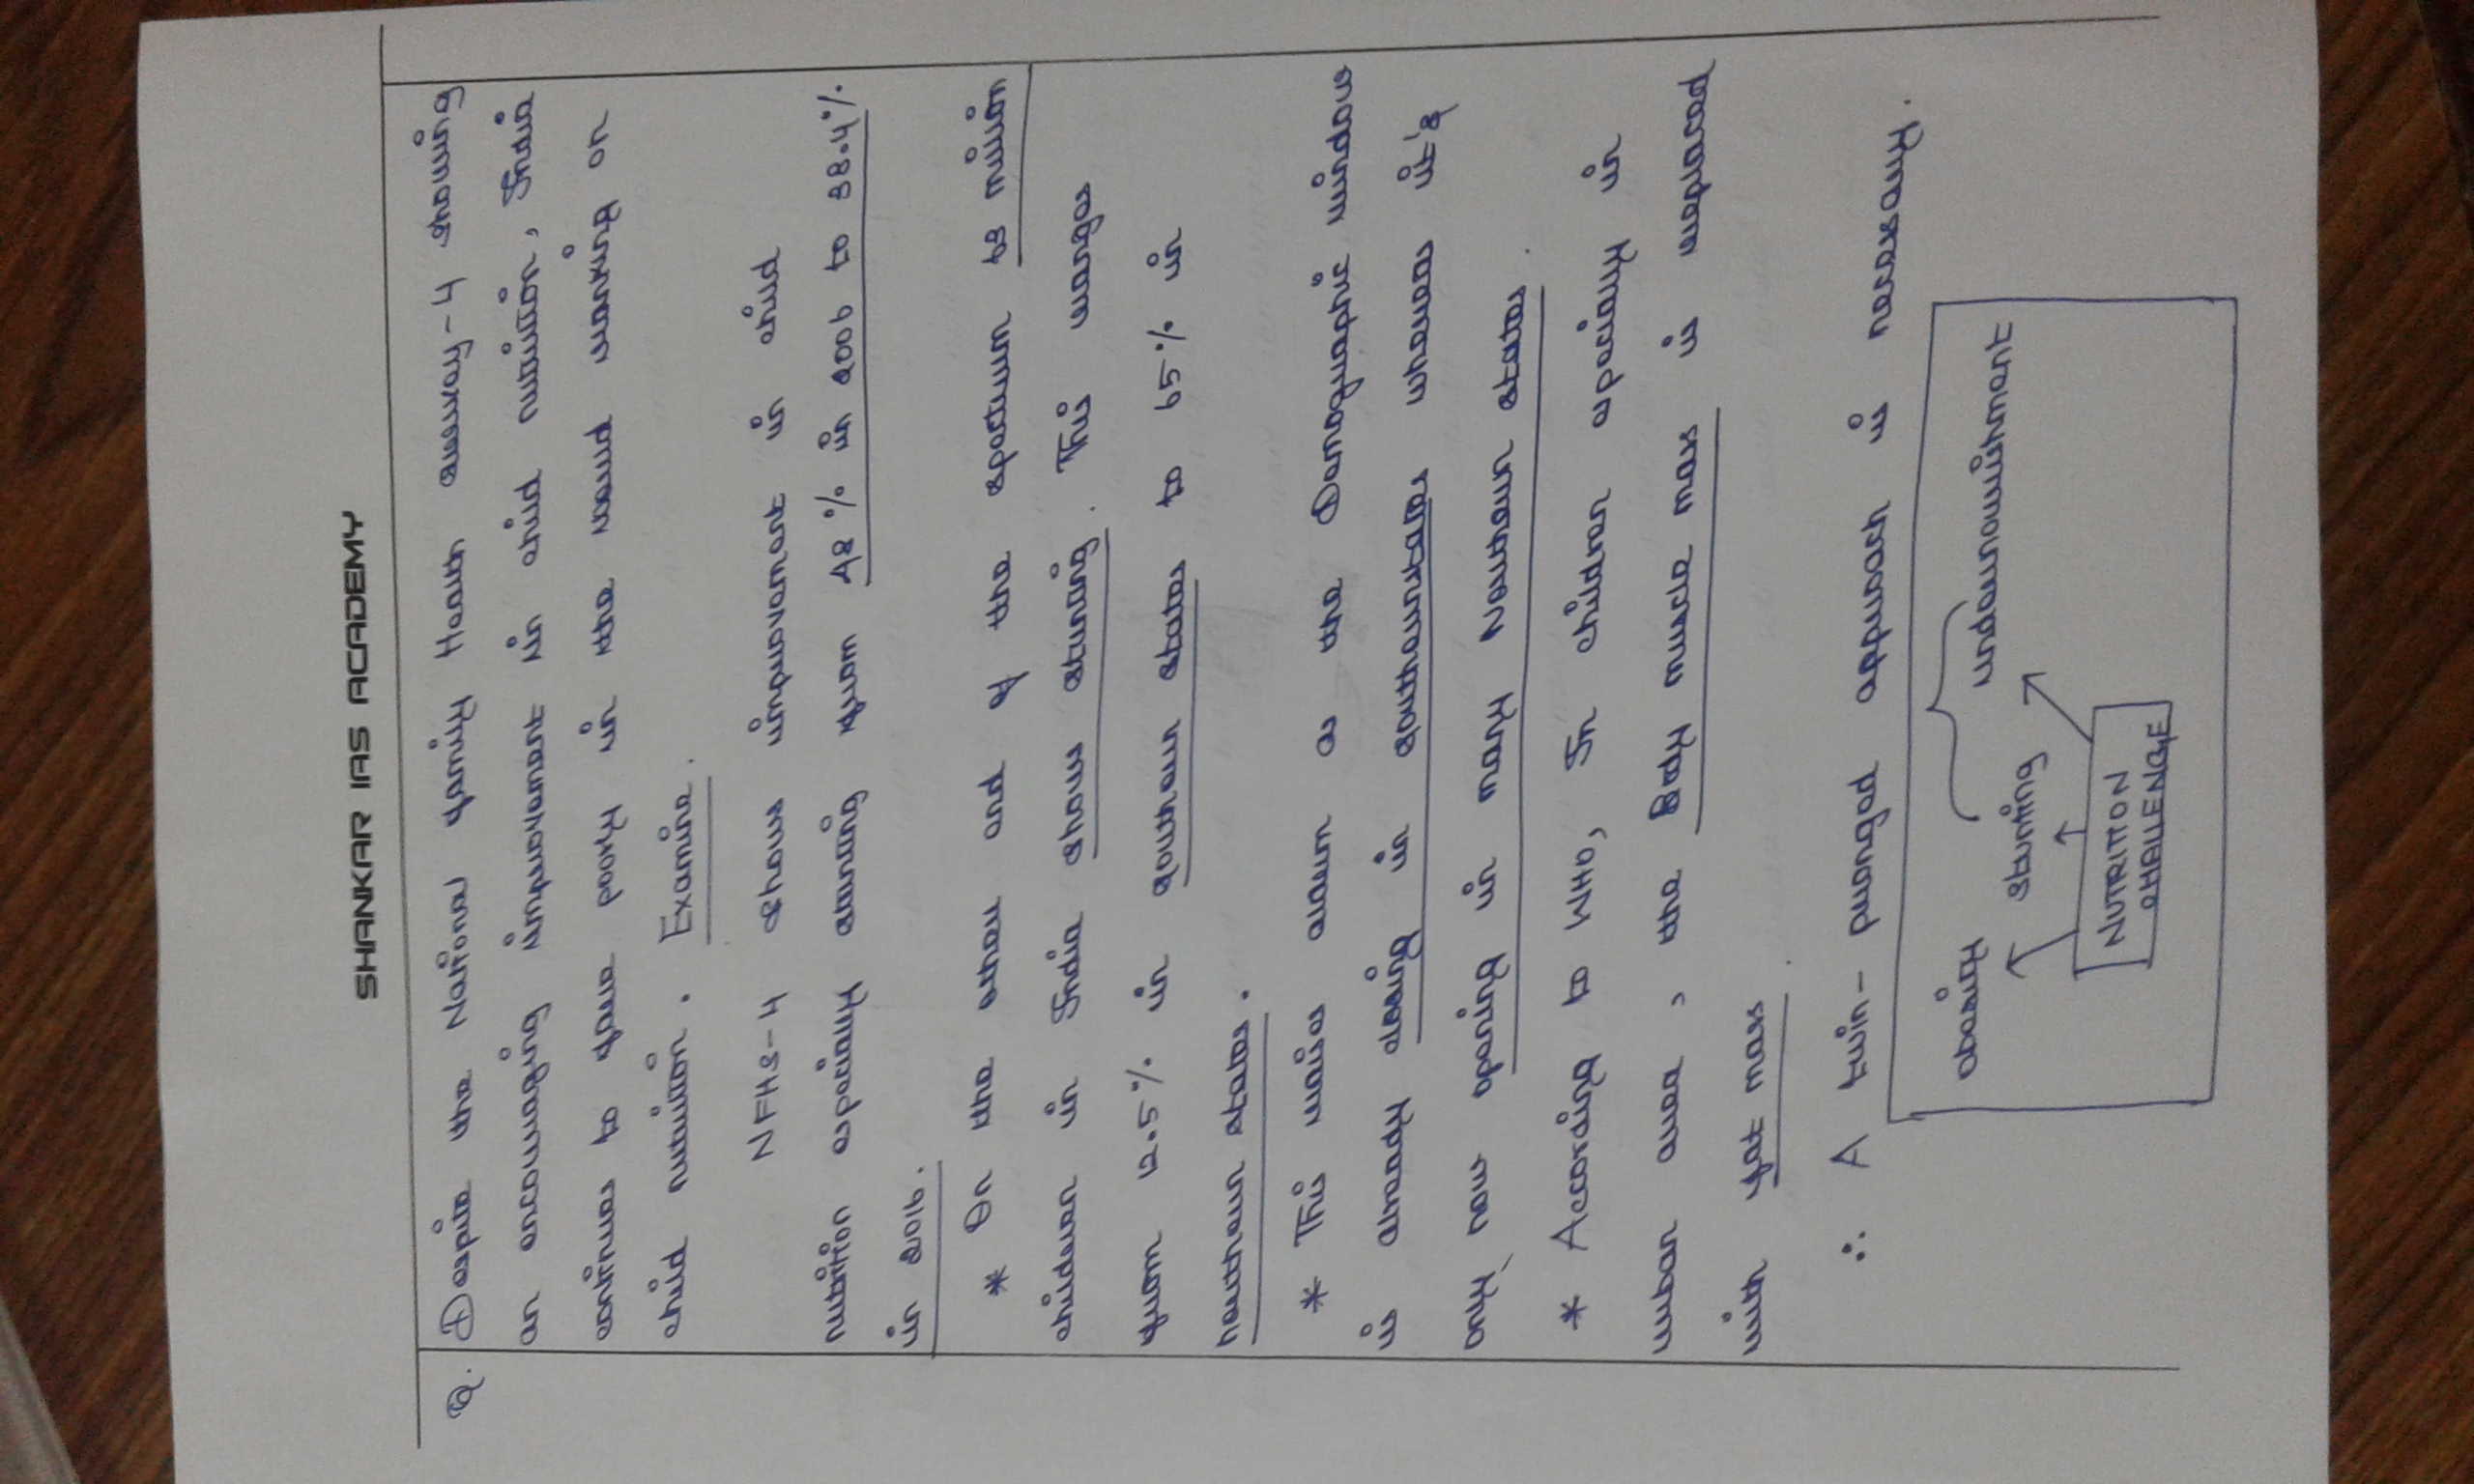 SHANKAR IAS ACADEMY
Q. Despite the National Family Health survey-4 showing
an encouraging improvement in child nutrition, India
continues to fare poorly in the world ranking on
child nutrition. Examine.
NFHS-4 shows improvement in child
nutrition especially stunting from 48% in 2006 to 38.4%
in 2016.
* On the other end of the spectrum 63 million
children in India shows stunting. This ranges
from 12.5% in southern states to 65% in
northern states.
* This raises alarm as the Demographic window
is already closing in southernstates whereas it's
only now opening in many Northern states.
* According to WHO, In children especially in
urban area, the Body muscle mass is replaced
with fat mass.
∴ A twin-pronged approach is necessary.
obesity stunting undernourishment
NUTRITION
CHALLENGE